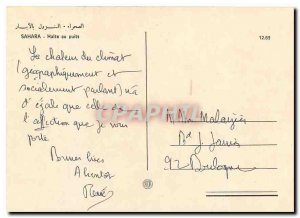 الصحراء - النزول بالآبار
SAHARA - Halte au puits
12.65
La chaleur du climat
(géographiquement et
socialement parlant) n'a
d'égale que celle de
l'affection que je vous
porte
Bonnes bises
A bientôt
René
Bd J. Jaurès
92 Boulogne